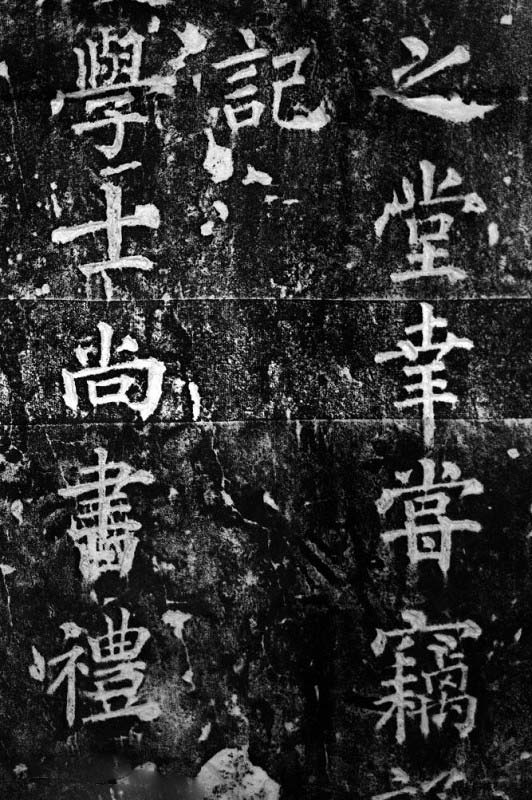 之堂幸嘗竊
記
學士尚書禮